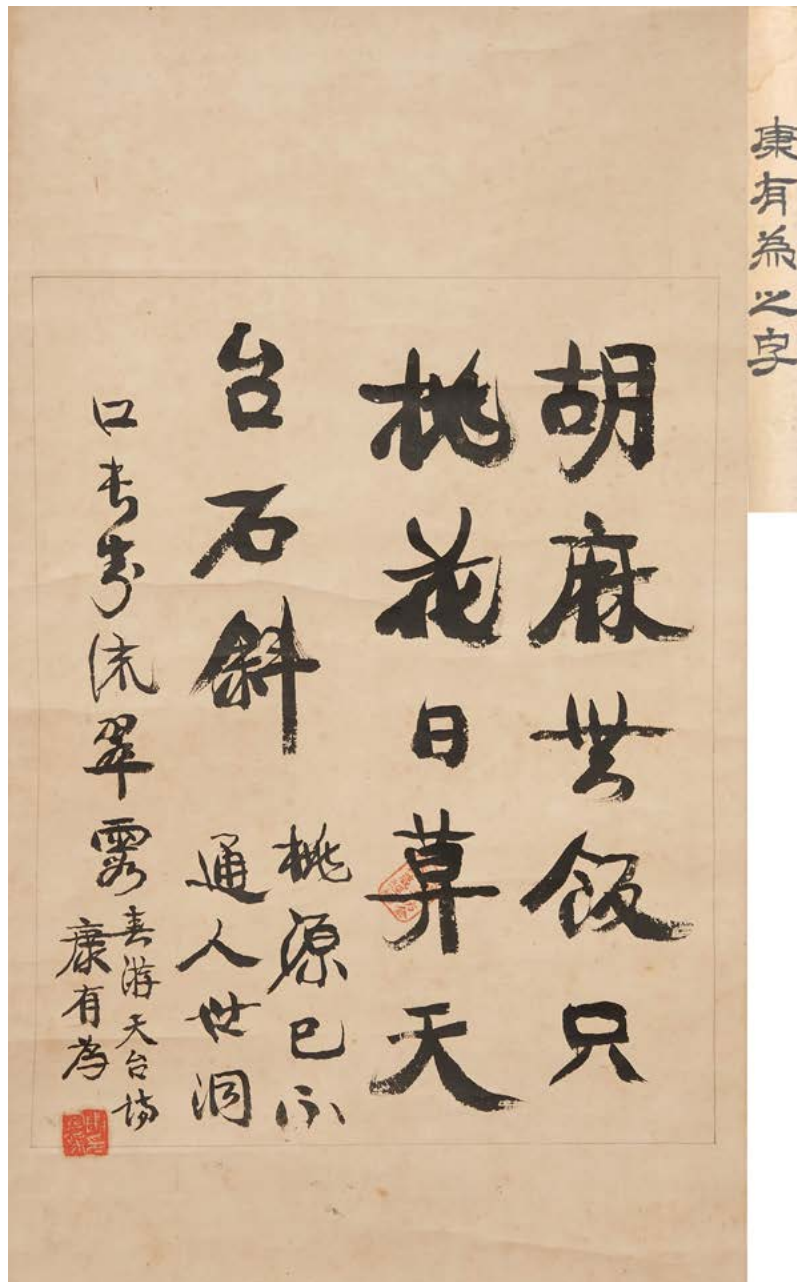 康有為之字
胡麻無飯只
桃花日莫天
台石斜
桃源已不
通人世洞
口長流翠霞
春游天台詩
康有為